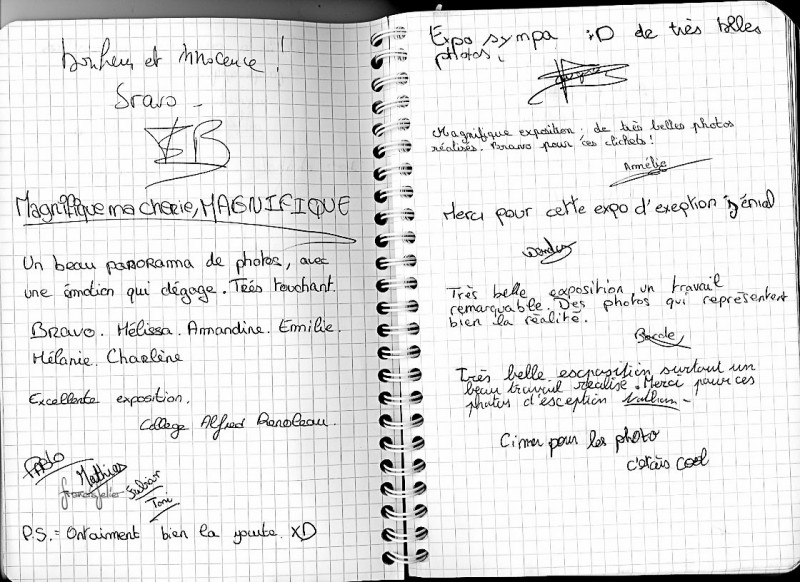 Bonheur et innocence !
Bravo -
Magnifique ma cherie, MAGNIFIQUE
Un beau panorama de photos, avec
une émotion qui dégage. Trés touchant.
Bravo. Mélissa. Amandine. Emilie.
Mélanie. Charlène
Excellente exposition.
College Alfred Renoleau.
PABLO
Mathias
Julian
Toni
P.S.= Ontaiment bien la yourte. XD
Expo sympa :D de très belles
photos.
Magnifique exposition, de très belles photos
réalisés. Bravo pour ces clichets !
Armélie
Merci pour cette expo d'exeption génial
Très belle exposition, un travail
remarquable. Des photos qui représentent
bien la réalité.
Très belle escposition surtout un
beau travail réalisé. Merci pour ces
photos d'esception
Cimer pour les photo
c'étais cool